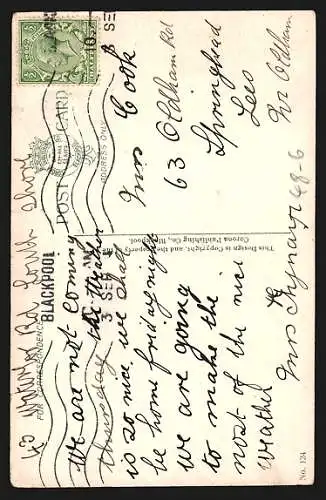 POST CARD
FOR CORRESPONDENCE
ADDRESS ONLY
BLACKPOOL
3 SEP
Rd South Shore
We are not coming
thursday the Weather
is so nice we shall
be home friday night
we are going
to make the
most of the nice
weather
Mrs
Miss Cook
63 Oldham Rd
Springhead
Lees
Nr Oldham
This Design is the property of the
Corona Publishing Co., Blackpool.
No. 124